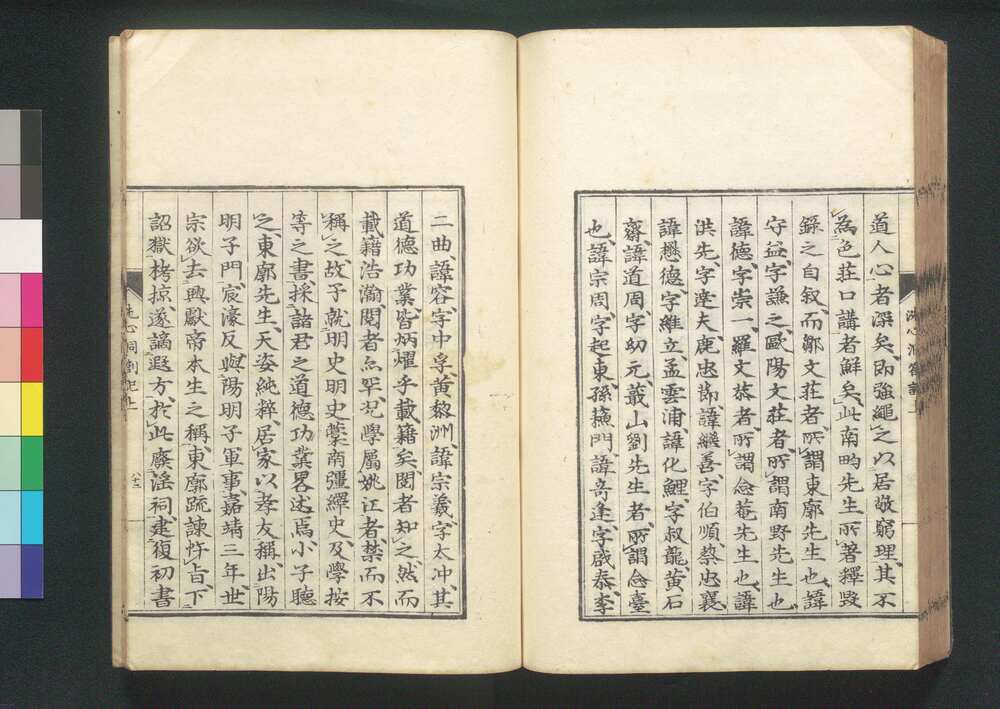 道人心者深矣、即強繩之以居敬窮理、其不
為色莊口講者鮮矣、此南畇先生所著釋毀
錄之自敘、而鄒文莊者、所謂東廓先生也、諱
守益、字謙之、歐陽文莊者、所謂南野先生也、
諱德、字崇一、羅文恭者、所謂念菴先生也、諱
洪先、字達夫、鹿忠節諱繼善、字伯順、蔡忠襄、
諱懋德、字維立、孟雲浦、諱化鯉、字叔龍、黃石
齋、諱道周、字幼元、蕺山劉先生者、所謂念臺
也、諱宗周、字起東、孫蘓門、諱奇逢、字啟泰、李
洗心洞劄記上
二曲、諱容、字中孚、黃黎洲、諱宗羲、字太冲、其
道德功業、皆炳燿乎載籍矣、閱者知之、然而
載籍浩瀚、閱者亦罕、況學屬姚江者、禁而不
稱之、故予就明史明史藁南疆繹史、及學按
等之書、採諸君之道德功業畧述焉、小子聽
之、東廓先生、天姿純粹、居家以孝友稱、出陽
明子門、宸濠反、與陽明子軍事、嘉靖三年、世
宗欲去興獻帝本生之稱、東廓疏諫忤旨、下
詔獄栲掠、遂謫遐方、於此廢滛祠、建復初書
洗心洞劄記上
六十二